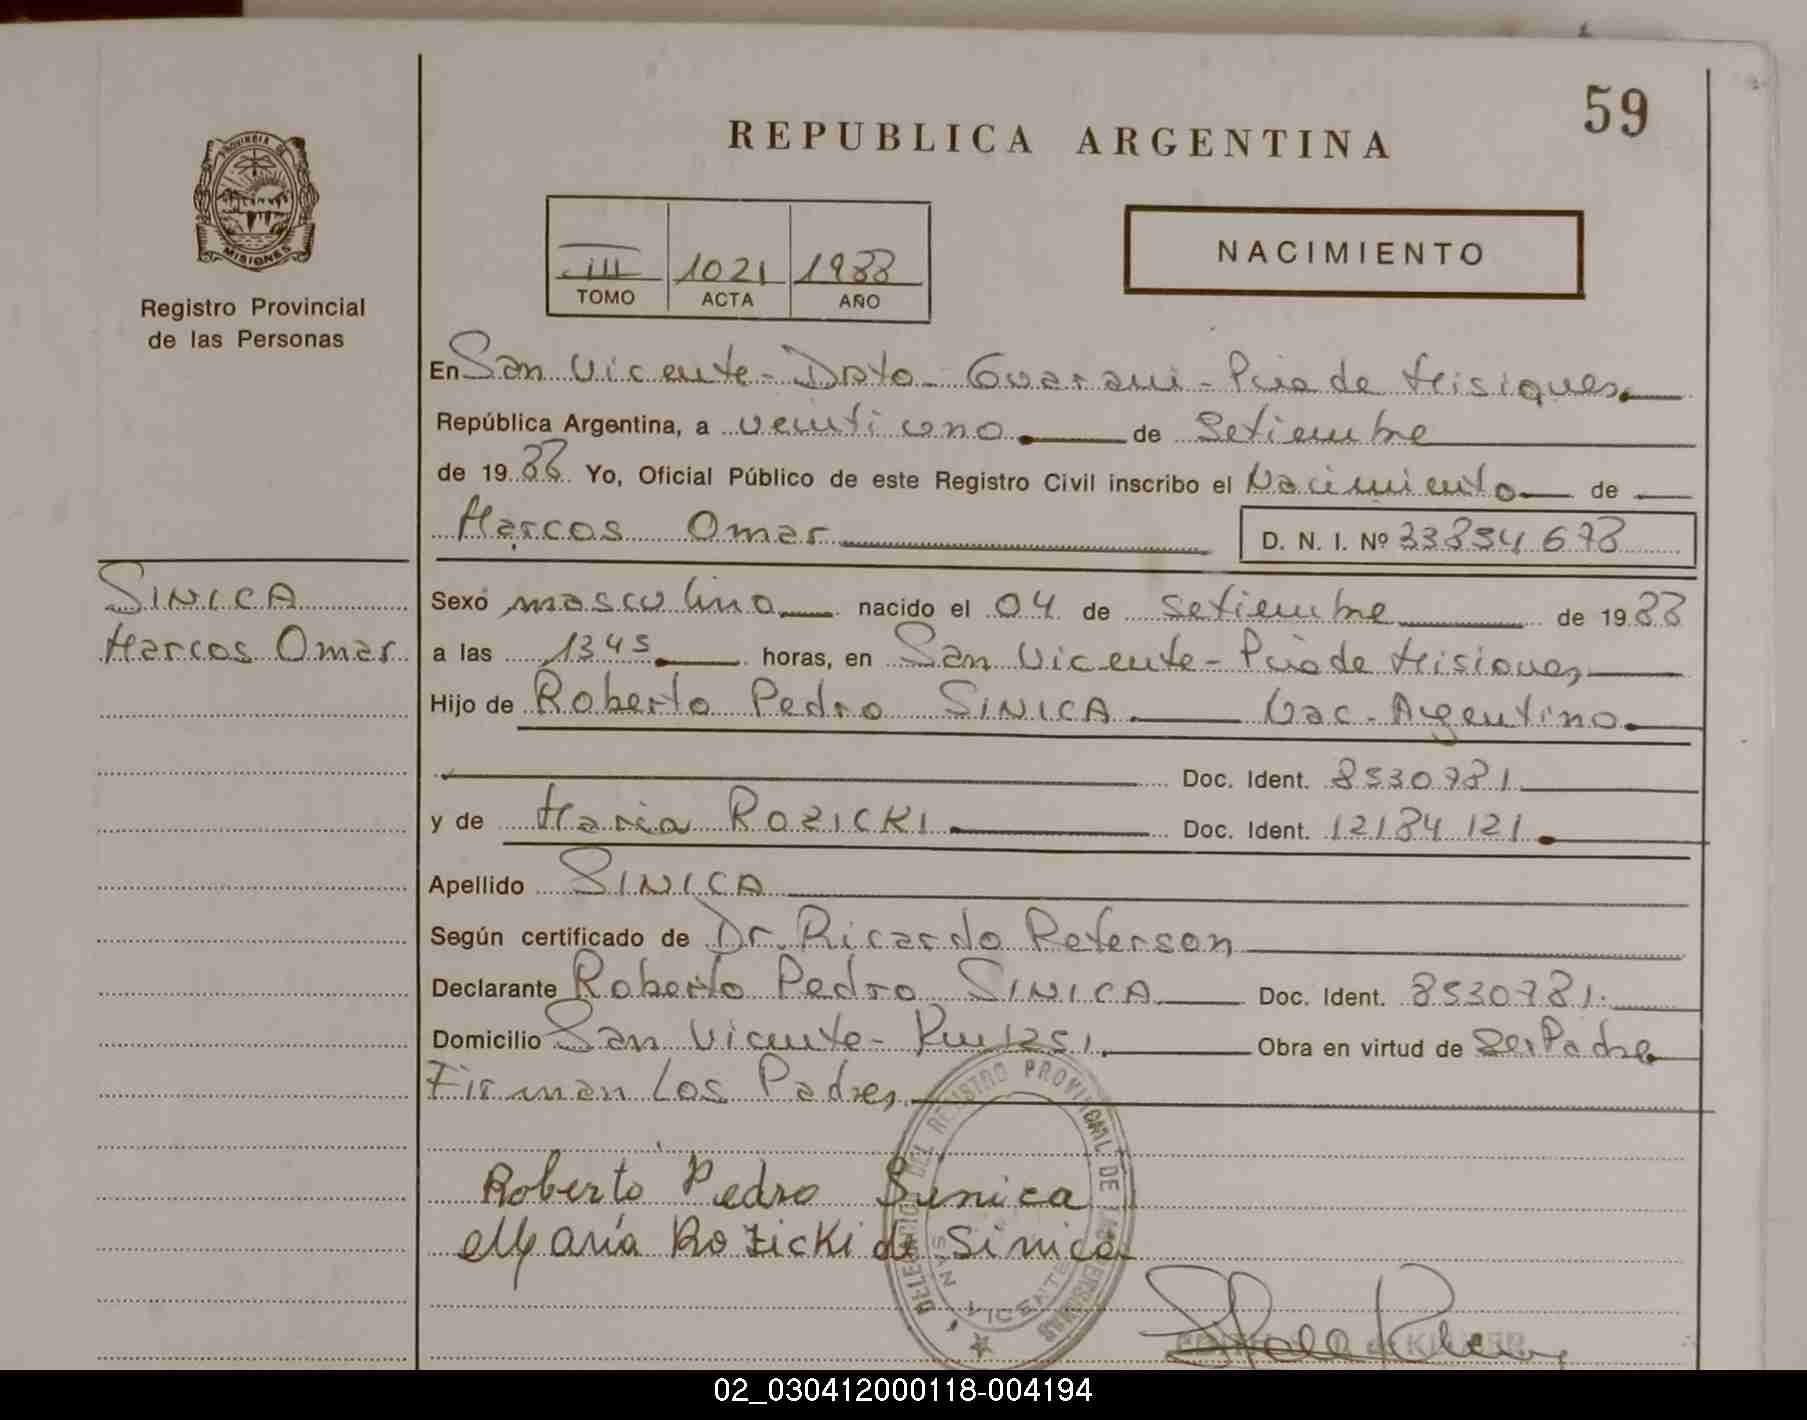 59
REPUBLICA ARGENTINA
PROVINCIA DE
MISIONES
Registro Provincial
de las Personas
III 1021 1988
TOMO ACTA AÑO
NACIMIENTO
En San Vicente - Dpto Guarani - Pcia de Misiones.
República Argentina, a veintiuno de Setiembre
de 1988 Yo, Oficial Público de este Registro Civil inscribo el Nacimiento de
Marcos Omar D. N. I. Nº 33854678
SINICA
Marcos Omar
Sexo masculino nacido el 04 de setiembre de 1988
a las 1345 horas, en San Vicente - Pcia de Misiones
Hijo de Roberto Pedro SINICA Nac. Argentino
Doc. Ident. 8530781
y de Maria ROZICKI Doc. Ident. 12184121
Apellido SINICA
Según certificado de Dr. Ricardo Peterson
Declarante Roberto Pedro SINICA Doc. Ident. 8530781.
Domicilio San Vicente - Km 1251. Obra en virtud de Ser Padre
Firman Los Padres
Roberto Pedro Sinica
Maria Rozicki de Sinica
DELEGACION DEL REGISTRO PROVINCIAL DE LAS PERSONAS
SAN VICENTE
02_030412000118-004194